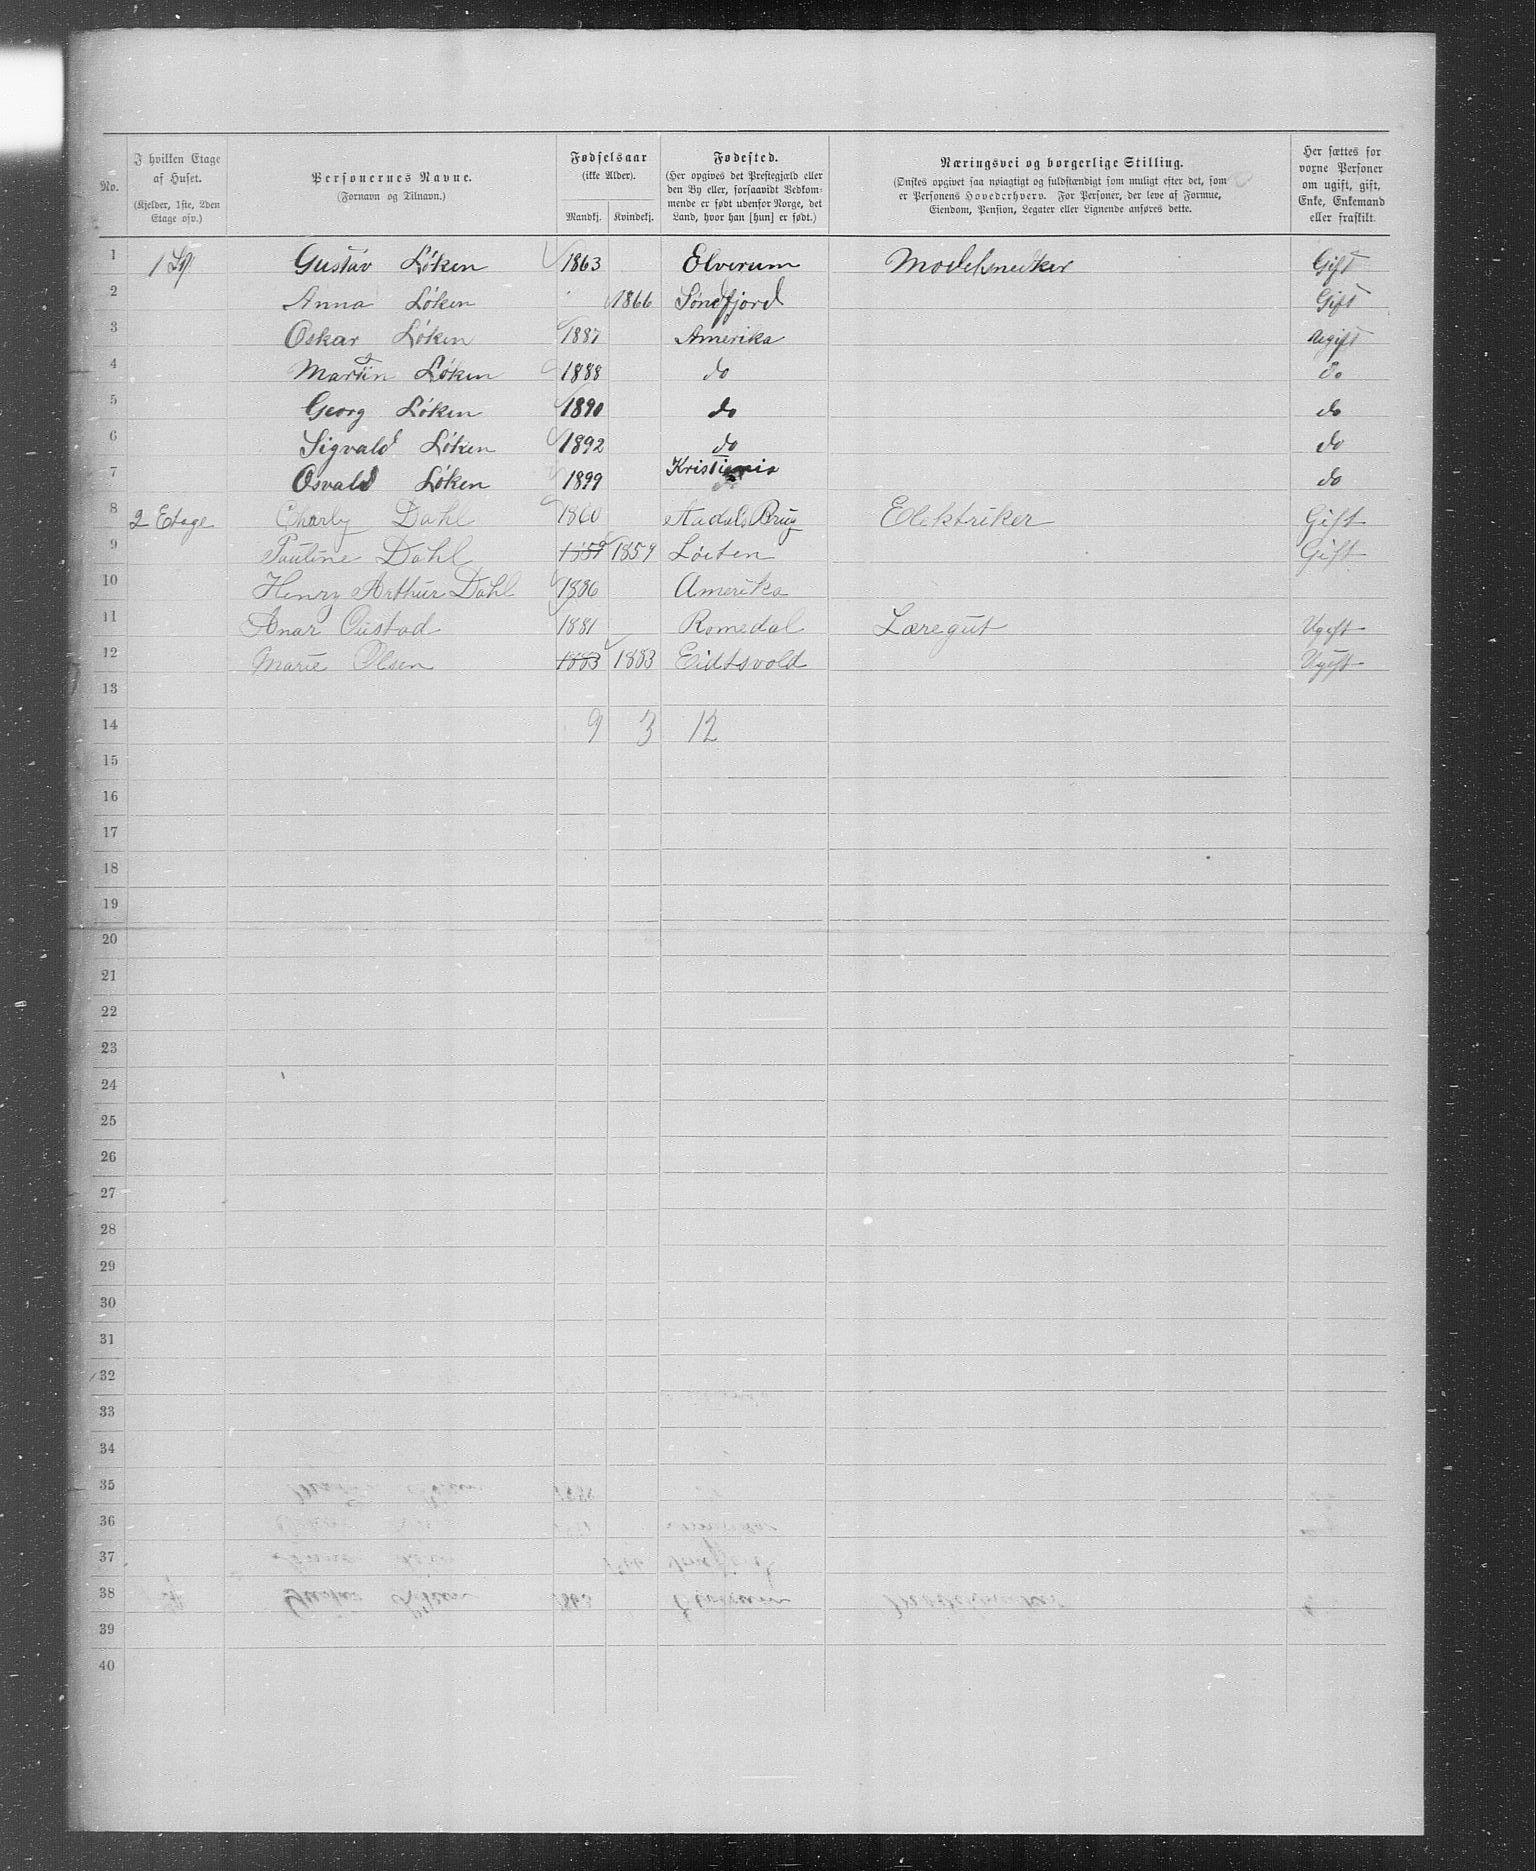 No.
I hvilken Etage af Huset.
(Kjelder, 1ste, 2den Etage osv.)
Personernes Navne.
(Fornavn og Tilnavn.)
Fødselsaar
(ikke Alder).
Mandkj. Kvindekj.
Fødested.
(Her opgives det Prestegjæld eller
den By eller, forsaavidt Vedkom-
mende er født udenfor Norge, det
Land, hvor han [hun] er født.)
Næringsvei og borgerlige Stilling.
(Ønskes opgivet saa nøiagtigt og fuldstændigt som muligt efter det, som
er Personens Hovederhverv. For Personer, der leve af Formue,
Eiendom, Pension, Legater eller Lignende anføres dette.
Her sættes for
voxne Personer
om ugift, gift,
Enke, Enkemand
eller fraskilt.
1 Gustav Löken 1863 Elverum Modelsnedker Gift
2 Anna Löken 1866 Söndfjord Gift
3 Oskar Löken 1887 Amerika Ugift
4 Martin Löken 1888 do do
5 Georg Löken 1890 do do
6 Sigvald Löken 1892 do do
7 Osvald Löken 1899 Kristiania do
8 2 Etage Charly Dahl 1860 Aadals Brug Elektriker Gift
9 Pauline Dahl 1859 1859 Löiten Gift
10 Henry Arthur Dahl 1886 Amerika
11 Anar Oustad 1881 Romedal Læregut Ugift
12 Marie Olsen 1883 1883 Eidtsvold Ugift
13
14 9 3 12
15
16
17
18
19
20
21
22
23
24
25
26
27
28
29
30
31
32
33
34
35
36
37
38
39
40